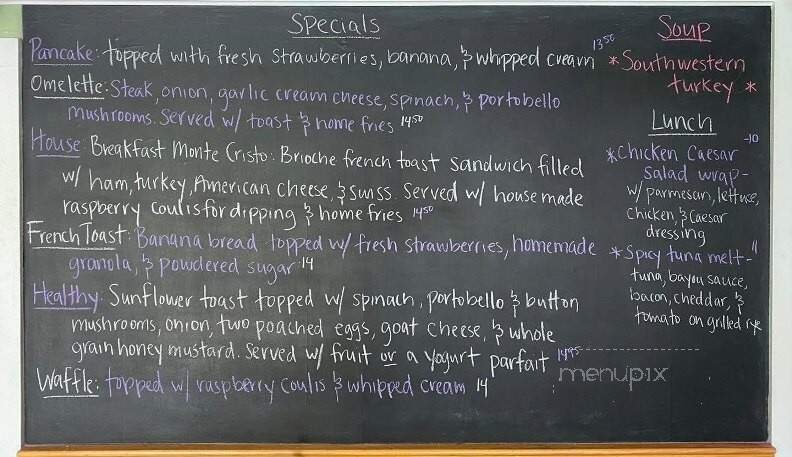 Specials
Pancake: topped with fresh strawberries, banana, & whipped cream 13.50
Omelette: Steak, onion, garlic cream cheese, spinach, & portobello
mushrooms. Served w/ toast & home fries 14.50
House: Breakfast Monte Cristo: Brioche french toast sandwich filled
w/ ham, turkey, American cheese, & swiss. Served w/ house made
raspberry coulis for dipping & home fries 14.50
French Toast: Banana bread topped w/ fresh strawberries, homemade
granola, & powdered sugar 14
Healthy: Sunflower toast topped w/ spinach, portobello & button
mushrooms, onion, two poached eggs, goat cheese, & whole
grain honey mustard. Served w/ fruit or a yogurt parfait 14.95
Waffle: topped w/ raspberry coulis & whipped cream 14
Soup
* Southwestern
turkey *
Lunch
* Chicken Caesar -10
salad wrap-
w/ parmesan, lettuce,
chicken, & caesar
dressing
* Spicy tuna melt- 11
tuna, bayou sauce,
bacon, cheddar, &
tomato on grilled rye
menupix